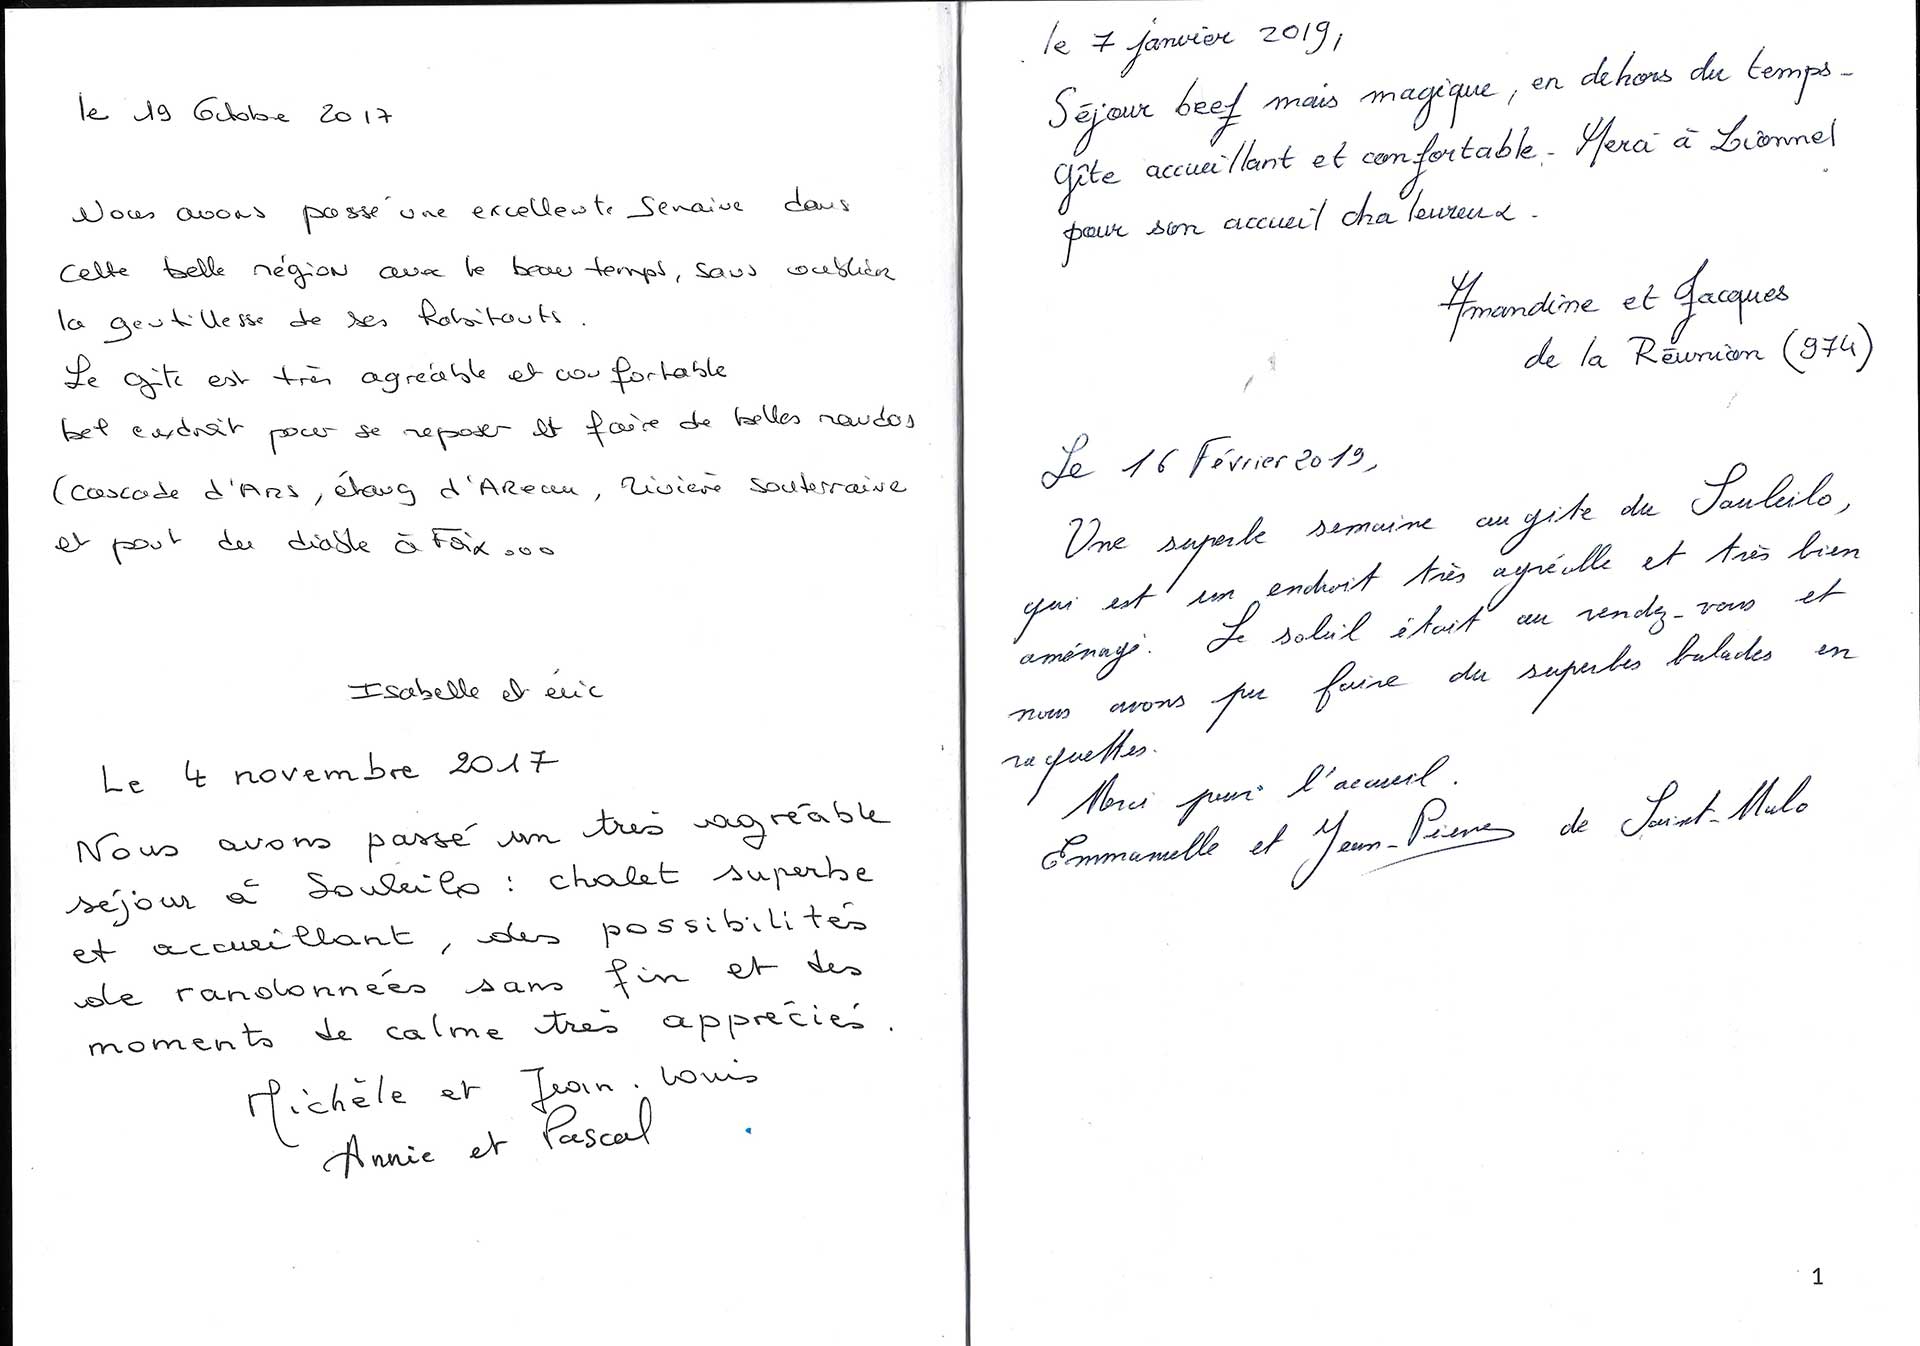 le 19 Octobre 2017
Nous avons passé une excellente semaine dans
cette belle région avec le beau temps, sans oublier
la gentillesse de ses habitants.
Le gîte est très agréable et confortable
bel endroit pour se reposer et faire de belles randos
(cascade d'Ars, étang d'Areau, rivière souterraine
et pont du diable à Foix...
Isabelle et éric
Le 4 novembre 2017
Nous avons passé un très agréable
séjour à Souleilo : chalet superbe
et accueillant, des possibilités
de randonnées sans fin et des
moments de calme très appréciés.
Michèle et Jean-Louis
Annie et Pascal
le 7 janvier 2019,
Séjour bref mais magique, en dehors du temps -
gîte accueillant et confortable - Merci à Lionnel
pour son accueil chaleureux.
Amandine et Jacques
de la Réunion (974)
Le 16 Février 2019,
Une superbe semaine au gite du Souleilo,
qui est un endroit très agréable et très bien
aménagé. Le soleil était au rendez-vous et
nous avons pu faire du superbes balades en
raquettes.
Merci pour l'accueil.
Emmanuelle et Jean-Pierre de Saint-Malo
1